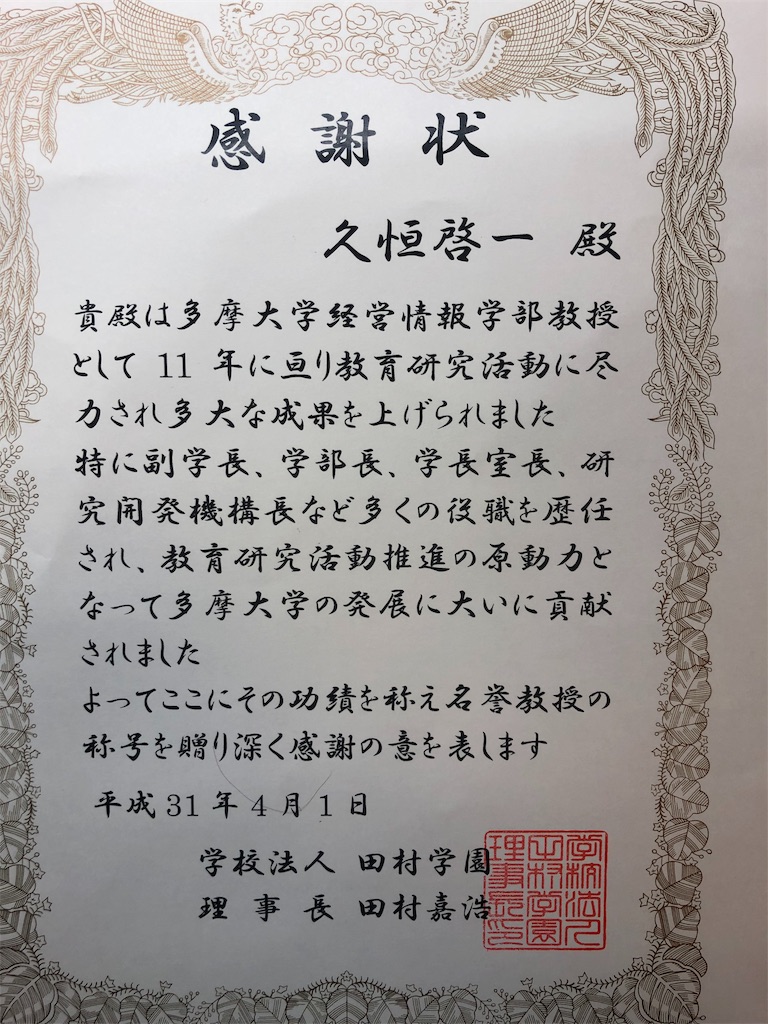 感謝状
久恒啓一 殿
貴殿は多摩大学経営情報学部教授
として 11 年に亘り教育研究活動に尽
力され多大な成果を上げられました
特に副学長、学部長、学長室長、研
究開発機構長など多くの役職を歴任
され、教育研究活動推進の原動力と
なって多摩大学の発展に大いに貢献
されました
よってここにその功績を称え名誉教授の
称号を贈り深く感謝の意を表します
平成 31 年 4 月 1 日
学校法人 田村学園
理事長 田村嘉浩
学校法人
田村学園
理事長印